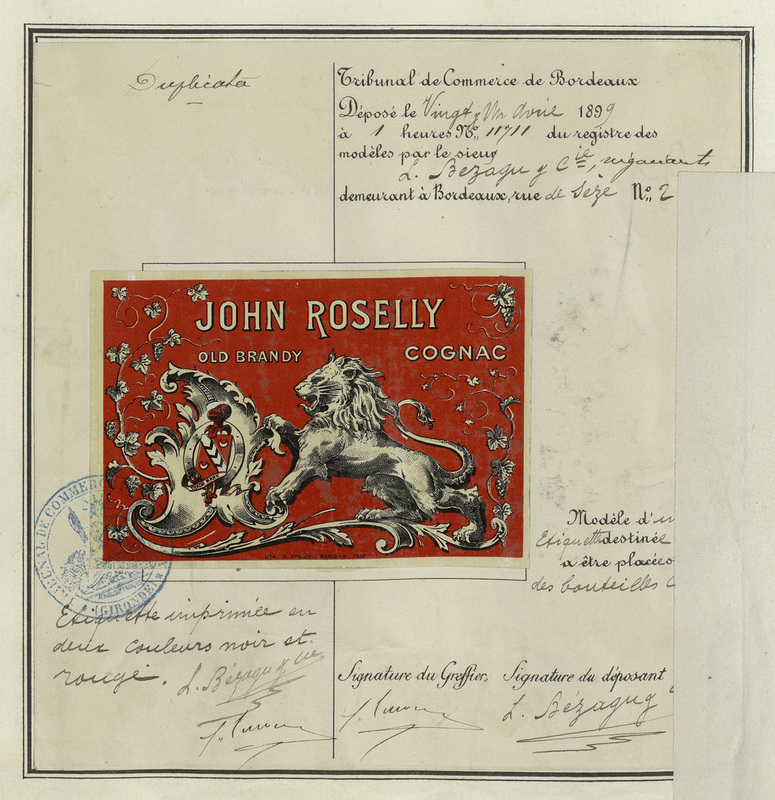 Duplicata
Tribunal de Commerce de Bordeaux
Déposé le Vingt Un Avril 1899
à 1 heures No. 11711 du registre des
modèles par le sieur
L. Bézagu & Cie, négociants
demeurant à Bordeaux, rue de Sèze No. 2
JOHN ROSELLY
OLD BRANDY COGNAC
BORDEAUX
TRIBUNAL DE COMMERCE
(GIRONDE)
Modèle d'un
Etiquette destinée
a être placées
des bouteilles
Etiquette imprimée en
deux couleurs noir et
rouge. L. Bézagu & Cie
Signature du Greffier, Signature du déposant
L. Bézagu &